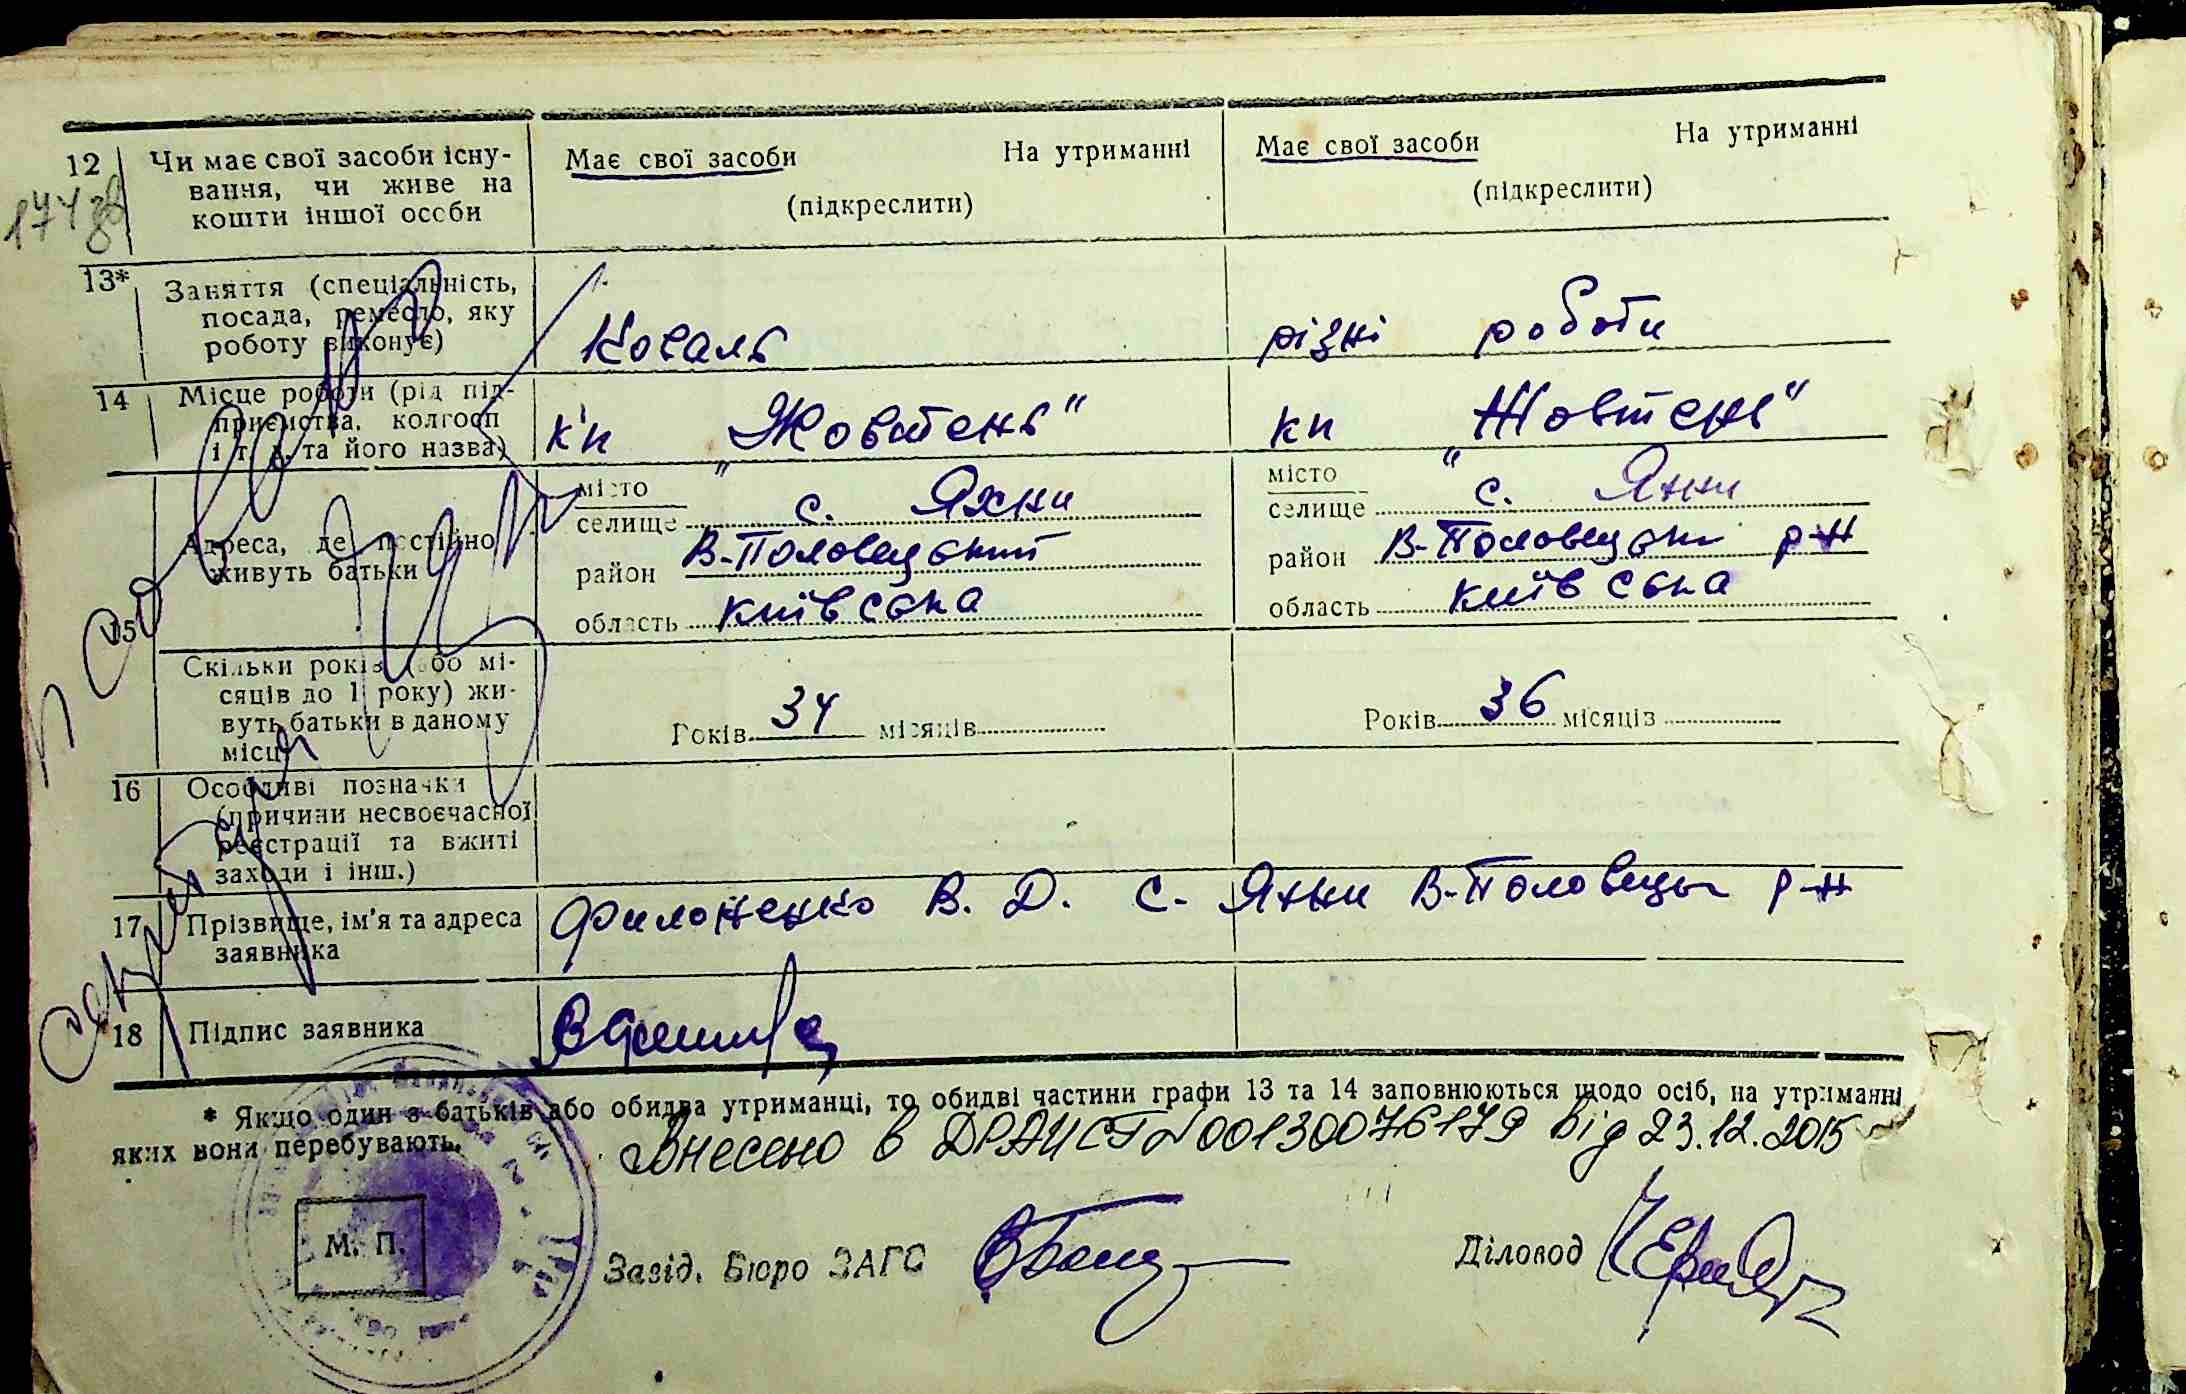 12 Чи має свої засоби існу-
вання, чи живе на
кошти іншої особи
Має свої засоби На утриманні
(підкреслити)
Має свої засоби На утриманні
(підкреслити)
13* Заняття (спеціальність,
посада, ремесло, яку
роботу виконує)
Коваль
різні роботи
14 Місце роботи (рід під-
приємства, колгосп
і т. д. та його назва)
к'п "Жовтень"
кп "Жовтень"
15
Адреса, де постійно
живуть батьки
місто
селище с. Яхни
район В-Половецький
область київська
місто
селище с. Яхни
район В-Половецький р-н
область київська
Скільки років (або мі-
сяців до 1 року) жи-
вуть батьки в даному
місці
Років 34 місяців
Років 36 місяців
16 Особливі позначки
(причини несвоєчасної
реєстрації та вжиті
заходи і інш.)
17 Прізвище, ім'я та адреса
заявника
Филоненко В. Д. с. Яхни В-Половецьк р-н
18 Підпис заявника
* Якщо один з батьків або обидва утриманці, то обидві частини графи 13 та 14 заповнюються щодо осіб, на утриманні
яких вони перебувають.
Внесено в ДРАЦСГ N00130076179 від 23.12.2015
М. П.
Завід. Бюро ЗАГС
Діловод